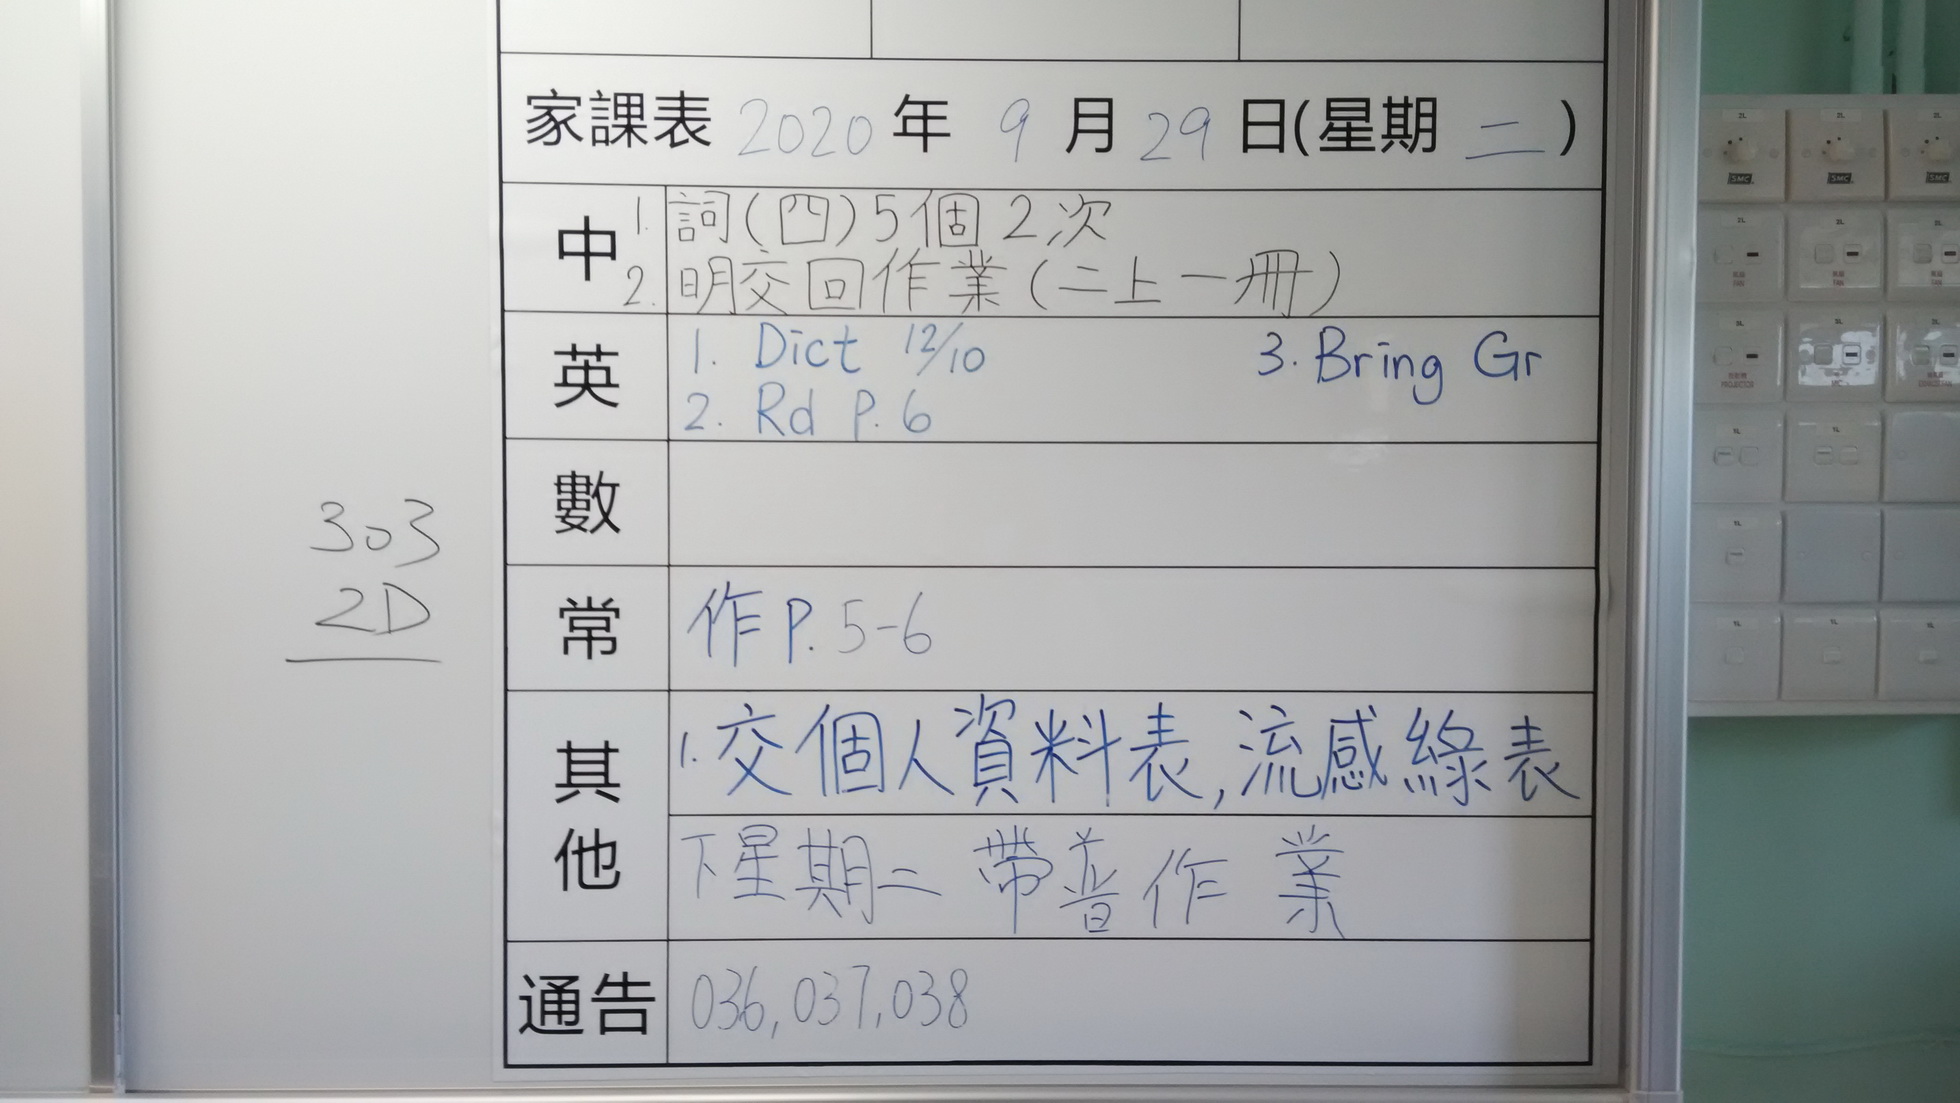 家課表 2020 年 9 月 29 日(星期 二)
中 1. 詞(四)5個 2次
2. 明交回作業(二上一冊)
英 1. Dict 12/10 3. Bring Gr
2. Rd P. 6
數
常 作P. 5-6
303
2D
其他 1. 交個人資料表, 流感綠表
下星期二 帶普作業
通告 036, 037, 038
SMC SMC SMC